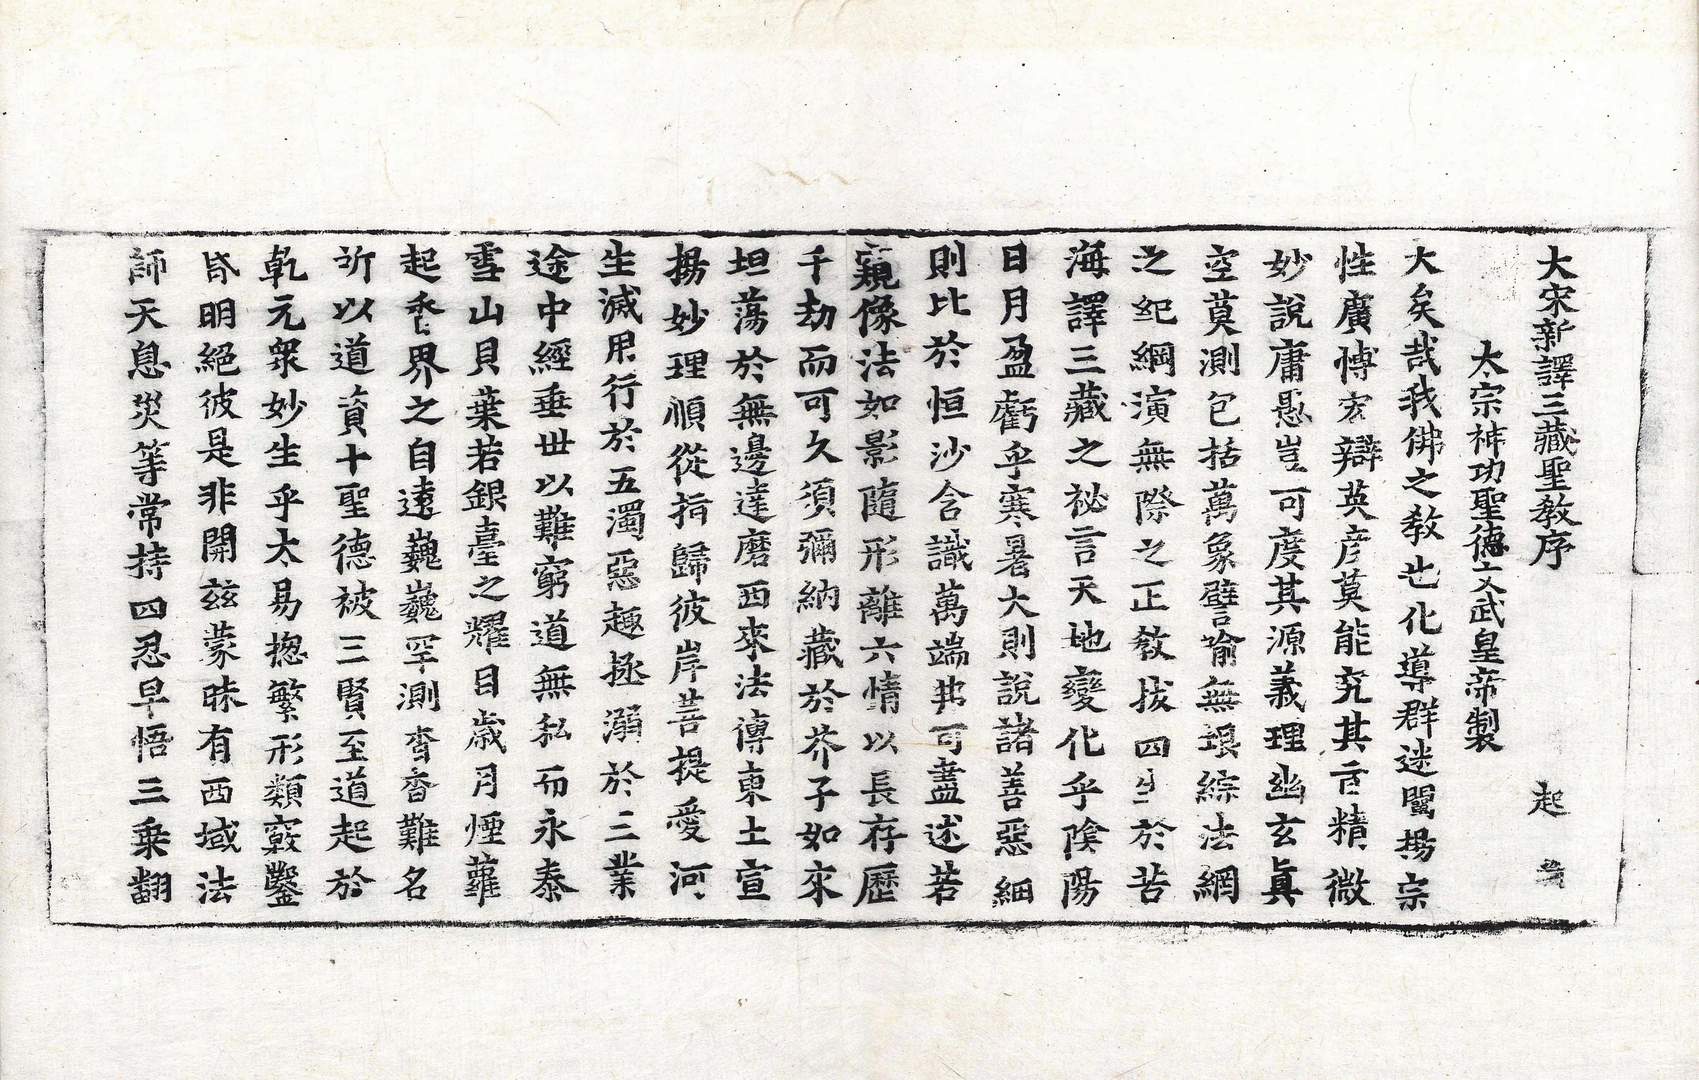 大宋新譯三藏聖教序 起
太宗神功聖德文武皇帝製
大矣哉我佛之教也化導群迷闡揚宗
性廣博宏辯英彦莫能究其旨精微
妙說庸愚豈可度其源義理幽玄真
空莫測包括萬象譬喻無垠綜法網
之紀綱演無際之正教拔四生於苦
海譯三藏之祕言天地變化乎陰陽
日月盈虧乎寒暑大則說諸善惡細
則比於恒沙含識萬端弗可盡述若
窺像法如影隨形離六情以長存歷
千劫而可久須彌納藏於芥子如來
坦蕩於無邊達磨西來法傳東土宣
揚妙理順從指歸彼岸菩提愛河
生滅用行於五濁惡趣拯溺於三業
途中經垂世以難窮道無私而永泰
雪山貝葉若銀臺之耀目歲月煙蘿
起香界之自遠巍巍罕測杳杳難名
所以道資十聖德被三賢至道起於
乾元衆妙生乎太易揔繁形類竅鑿
昏明絕彼是非開兹蒙昧有西域法
師天息災等常持四忍早悟三乘翻